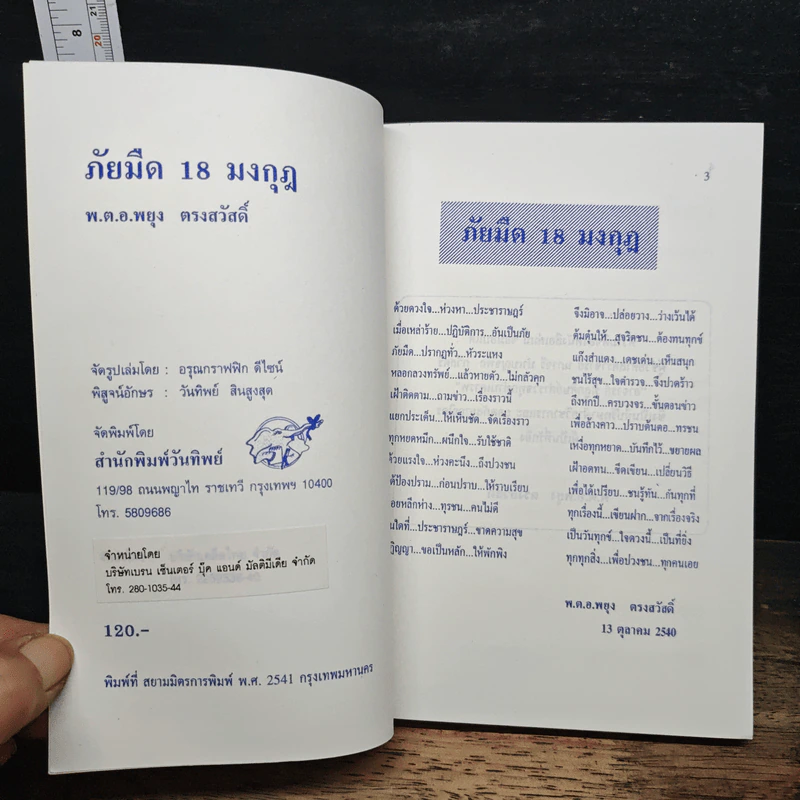 8
21
20
ภัยมืด 18 มงกุฎ
พ.ต.อ.พยุง ตรงสวัสดิ์
จัดรูปเล่มโดย : อรุณกราฟฟิก ดีไซน์
พิสูจน์อักษร : วันทิพย์ สินสูงสุด
จัดพิมพ์โดย
สำนักพิมพ์วันทิพย์
119/98 ถนนพญาไท ราชเทวี กรุงเทพฯ 10400
โทร. 5809686
จำหน่ายโดย
บริษัทเบรน เซ็นเตอร์ บุ๊ค แอนด์ มัลติมีเดีย จำกัด
โทร. 280-1035-44
120.-
พิมพ์ที่ สยามมิตรการพิมพ์ พ.ศ. 2541 กรุงเทพมหานคร
3
ภัยมืด 18 มงกุฎ
ด้วยดวงใจ...ห่วงหา...ประชาราษฎร์ จึงมิอาจ...ปล่อยวาง...ว่างเว้นได้
เมื่อเหล่าร้าย...ปฏิบัติการ...อันเป็นภัย ต้มตุ๋นให้...สุจริตชน...ต้องทนทุกข์
ภัยมืด...ปรากฏทั่ว...หัวระแหง แก๊งสำแดง...เดชเด่น...เห็นสนุก
หลอกลวงทรัพย์...แล้วหายตัว...ไม่กลัวคุก ชนไร้สุข...ใจตำรวจ...จึงปวดร้าว
เฝ้าติดตาม...ถามข่าว...เรื่องราวนี้ ถึงหกปี...ครบวงจร...ขั้นตอนข่าว
แยกประเด็น...ให้เห็นชัด...จัดเรื่องราว เพื่อล้างคาว...ปราบต้นตอ...ทรชน
ทุกหยดหมึก...ผนึกใจ...รับใช้ชาติ เหงื่อทุกหยาด...บันทึกไว้...ขยายผล
ด้วยแรงใจ...ห่วงคะนึง...ถึงปวงชน เฝ้าอดทน...ขีดเขียน...เปลี่ยนวิธี
ได้ป้องปราม...ก่อนปราบ...ให้ราบเรียบ เพื่อได้เปรียบ...ชนรู้ทัน...กันทุกที่
คอยหลีกห่าง...ทุรชน...คนไม่ดี ทุกเรื่องนี้...เขียนฝาก...จากเรื่องจริง
วันใดที่...ประชาราษฎร์...ขาดความสุข เป็นวันทุกข์...ใจดวงนี้...เป็นที่ยิ่ง
...ขอเป็นหลัก...ให้พักพิง ทุกทุกสิ่ง...เพื่อปวงชน...ทุกคนเอย
พ.ต.อ.พยุง ตรงสวัสดิ์
13 ตุลาคม 2540